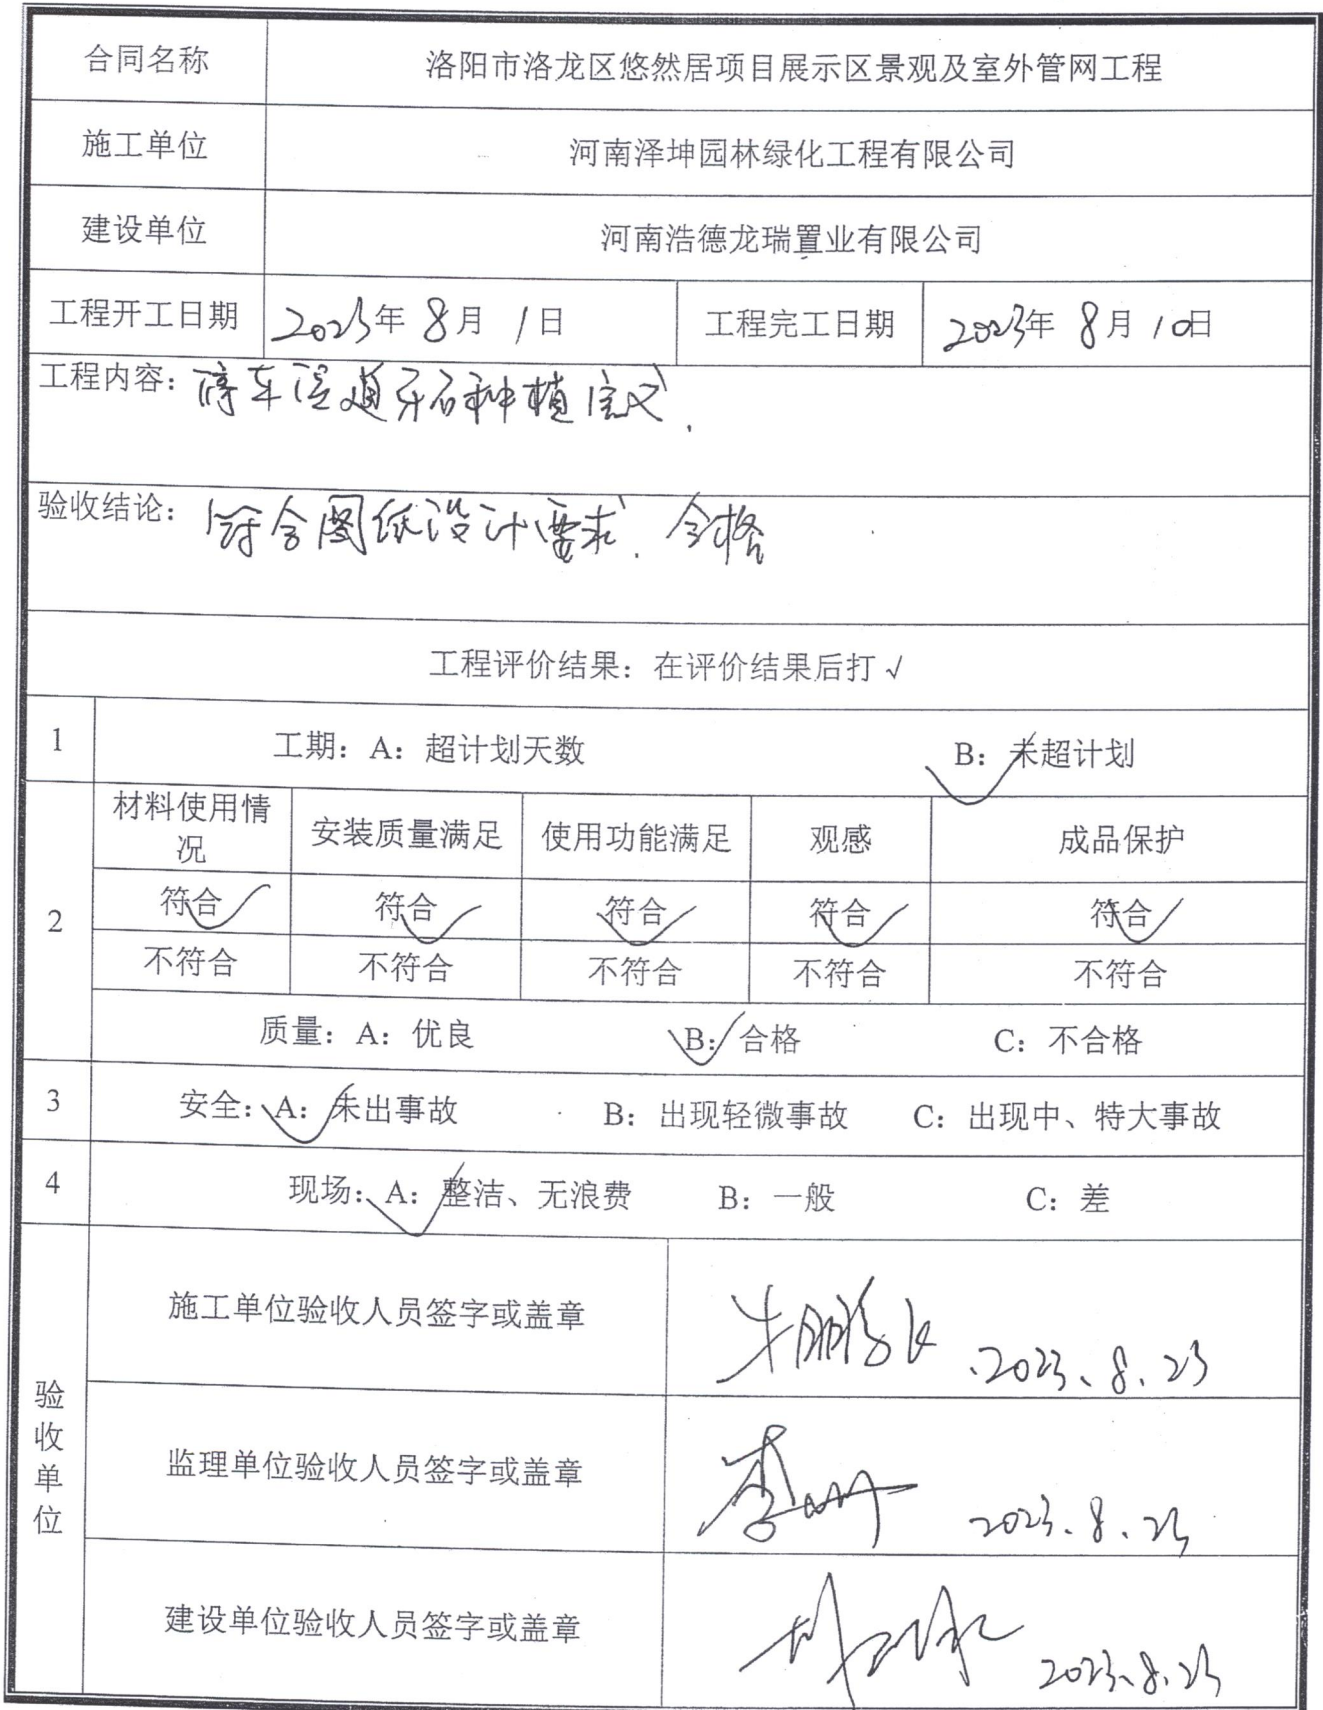 合同名称 洛阳市洛龙区悠然居项目展示区景观及室外管网工程
施工单位 河南泽坤园林绿化工程有限公司
建设单位 河南浩德龙瑞置业有限公司
工程开工日期 2023年 8月 1日 工程完工日期 2023年 8月 10日
工程内容：停车位道牙石种植完成.
验收结论：符合图纸设计要求. 合格
工程评价结果：在评价结果后打√
1 工期：A：超计划天数 B：未超计划 √
2 材料使用情况 安装质量满足 使用功能满足 观感 成品保护
符合 √ 符合 √ 符合 √ 符合 √ 符合 √
不符合 不符合 不符合 不符合 不符合
质量：A：优良 B：√ 合格 C：不合格
3 安全：A：√ 未出事故 B：出现轻微事故 C：出现中、特大事故
4 现场：A：√ 整洁、无浪费 B：一般 C：差
验收单位
施工单位验收人员签字或盖章 2023.8.23
监理单位验收人员签字或盖章 李 2023.8.23
建设单位验收人员签字或盖章 2023.8.23